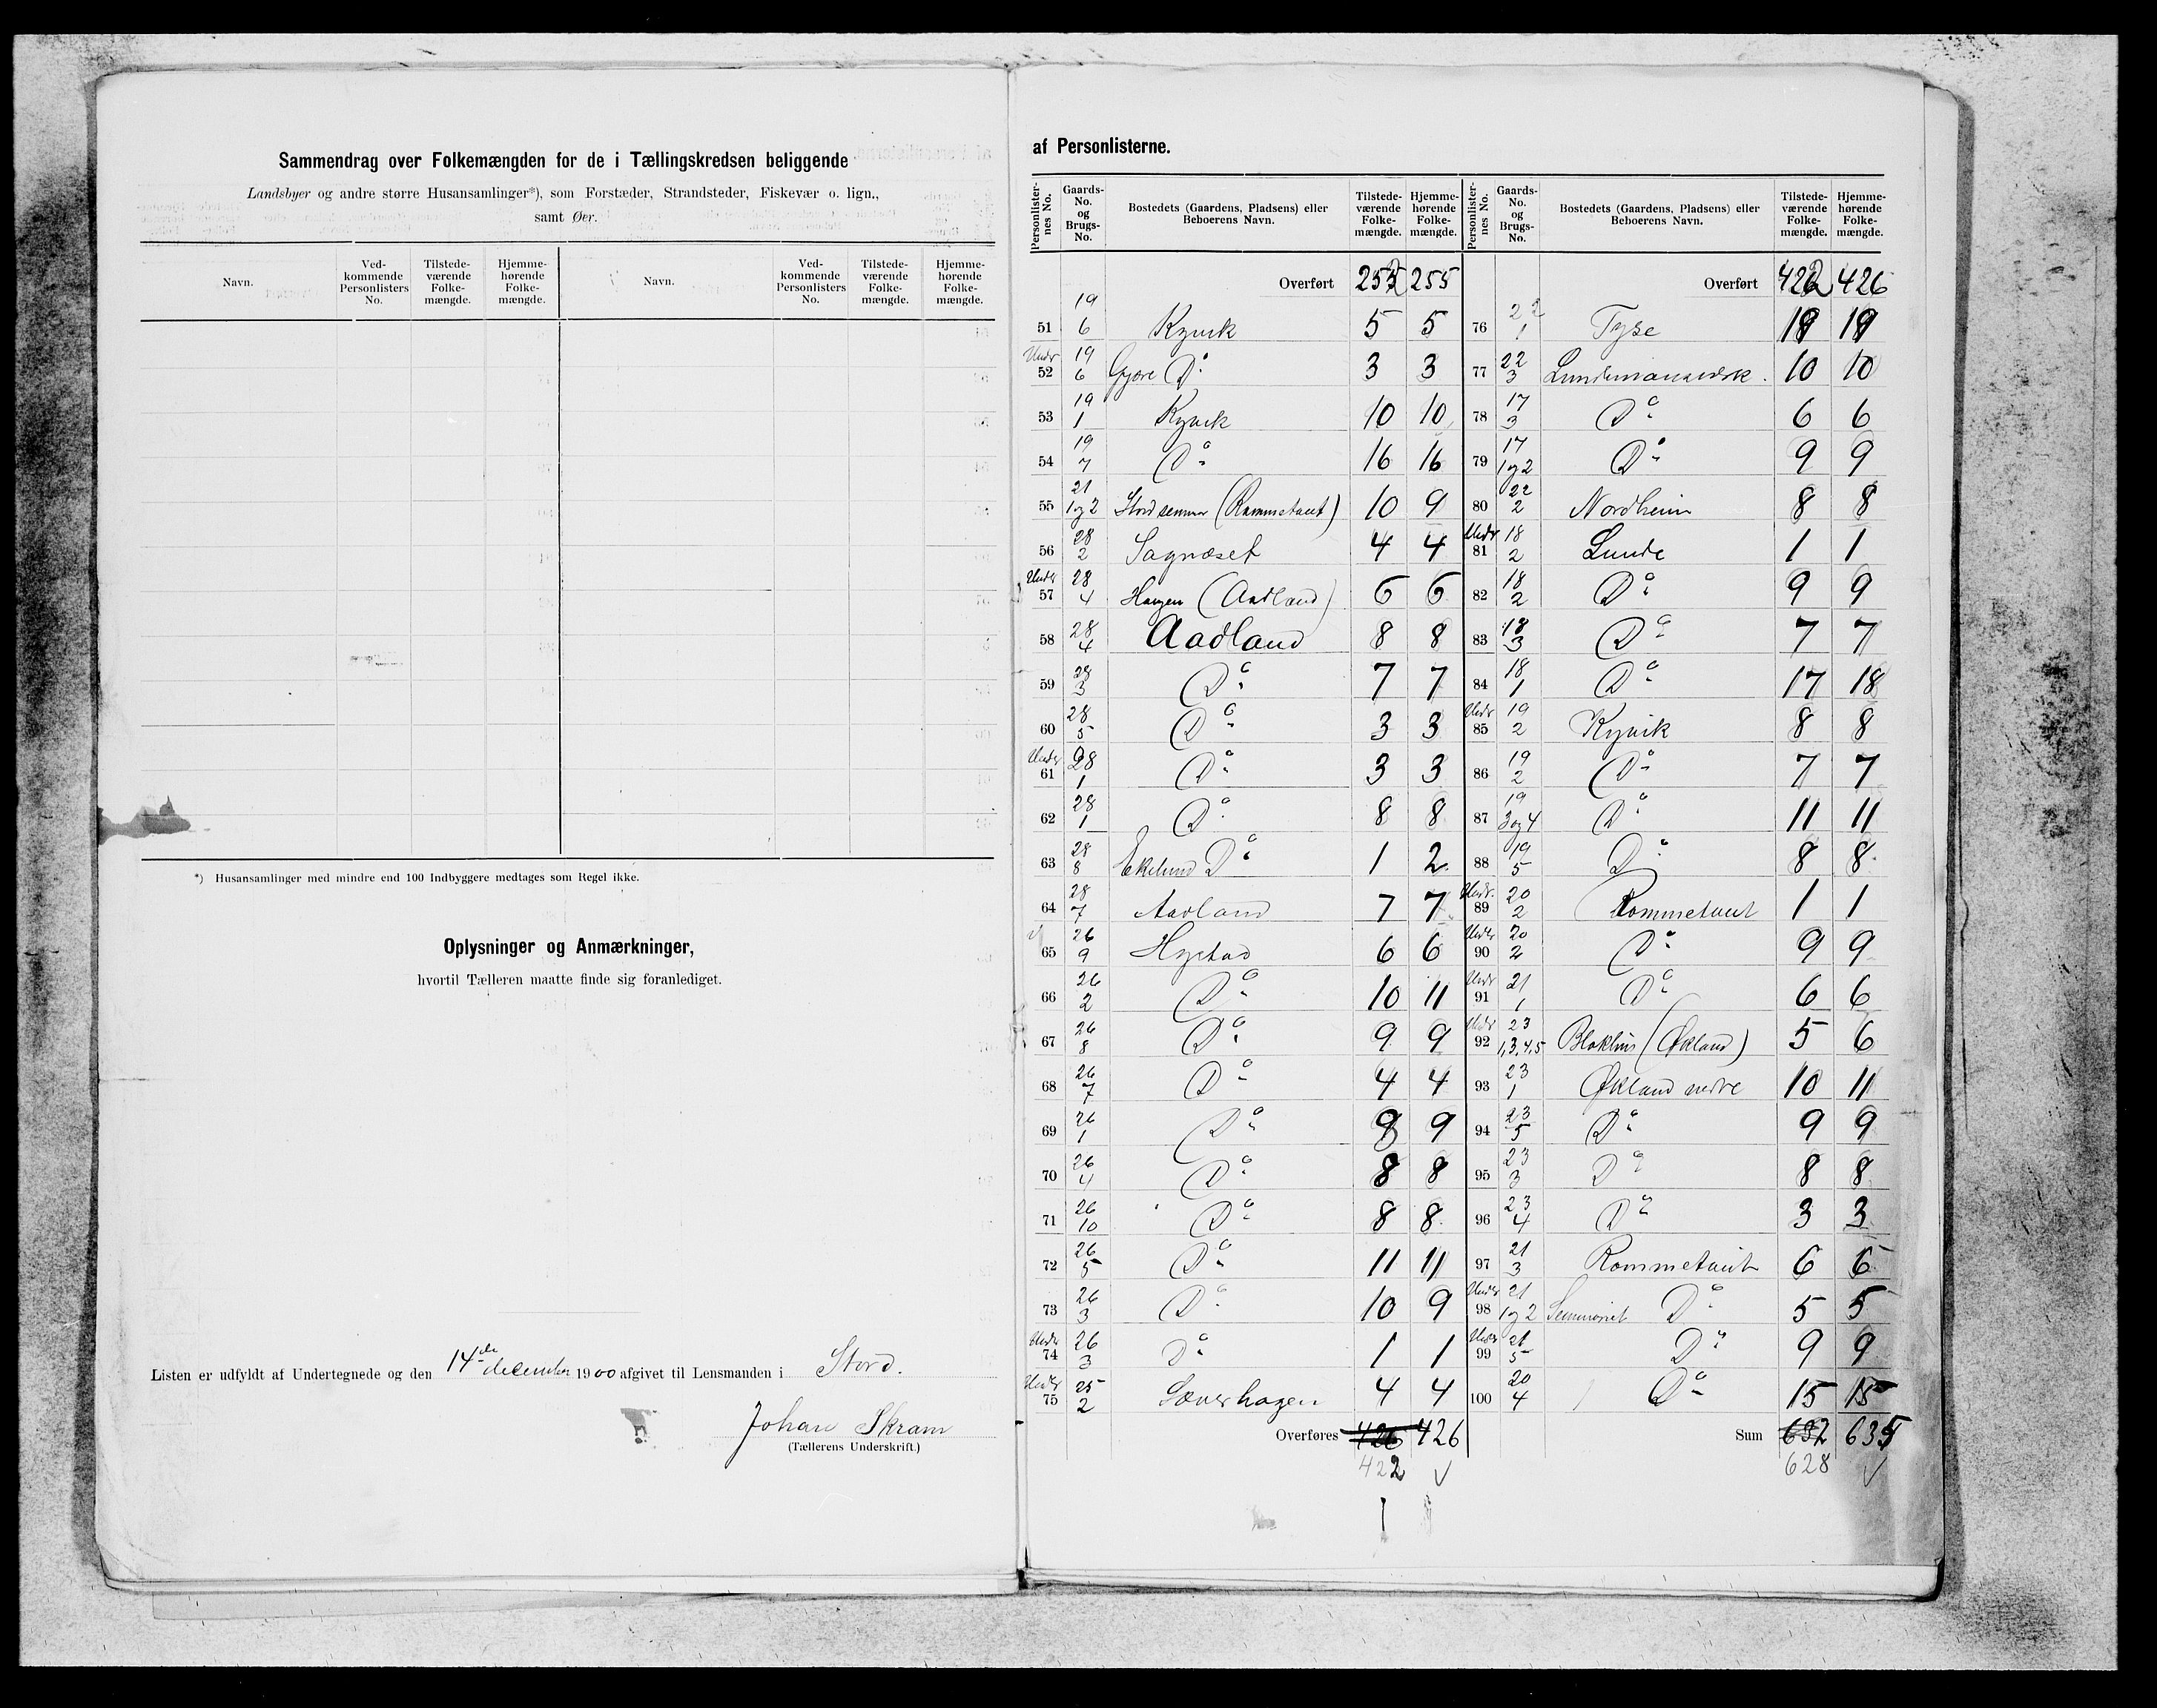 Sammendrag over Folkemængden for de i Tællingskredsen beliggende
Landsbyer og andre større Husansamlinger*), som Forstæder, Strandsteder, Fiskevær o. lign.,
samt Øer.
Navn. Ved-kommende Personlisters No. Tilstede-værende Folke-mængde. Hjemme-hørende Folke-mængde. Navn. Ved-kommende Personlisters No. Tilstede-værende Folke-mængde. Hjemme-hørende Folke-mængde.
*) Husansamlinger med mindre end 100 Indbyggere medtages som Regel ikke.
Oplysninger og Anmærkninger,
hvortil Tælleren maatte finde sig foranlediget.
Listen er udfyldt af Undertegnede og den 14de december 1900 afgivet til Lensmanden i Stord.
Johan Skram
(Tællerens Underskrift.)
af Personlisterne.
Personlister-nes No. Gaards-No. og Brugs-No. Bostedets (Gaardens, Pladsens) eller Beboerens Navn. Tilstede-værende Folke-mængde. Hjemme-hørende Folke-mængde.
Overført 252 255
51 19 6 Kyvik 5 5
Under 52 19 6 Gjøre Do 3 3
53 19 1 Kyvik 10 10
54 19 7 Do 16 16
55 21 1og2 Stord (Rommetveit) 10 9
56 28 2 Sagnæset 4 4
Under 57 28 4 Haugen (Aadland) 6 6
58 28 4 Aadland 8 8
59 28 3 Do 7 7
60 28 5 Do 3 3
Under 61 28 1 Do 3 3
62 28 1 Do 8 8
63 28 8 Ekelund Do 1 2
64 28 7 Aadland 7 7
65 26 9 Hystad 6 6
66 26 2 Do 10 11
67 26 8 Do 9 9
68 26 7 Do 4 4
69 26 1 Do 9 9
70 26 4 Do 8 8
71 26 10 Do 8 8
72 26 5 Do 11 11
73 26 3 Do 10 9
Under 74 26 3 Do 1 1
Under 75 25 2 Sæverhagen 4 4
Overføres 426 426
422
Personlister-nes No. Gaards-No. og Brugs-No. Bostedets (Gaardens, Pladsens) eller Beboerens Navn. Tilstede-værende Folke-mængde. Hjemme-hørende Folke-mængde.
Overført 422 426
76 22 1 Tyse 19 19
77 22 3 10 10
78 17 3 Do 6 6
79 17 1og2 Do 9 9
80 22 2 Nordheim 8 8
Under 81 18 2 Lunde 1 1
82 18 2 Do 9 9
83 18 3 Do 7 7
84 18 1 Do 17 18
Under 85 19 2 Kyvik 8 8
86 19 2 Do 7 7
87 19 3og4 Do 11 11
88 19 5 Do 8 8
Under 89 20 2 Rommetveit 1 1
Under 90 20 2 Do 9 9
Under 91 21 1 Do 6 6
Under 92 23 1,3,4,5 Blokhus (Økland) 5 6
93 23 1 Økland nedre 10 11
94 23 5 Do 9 9
95 23 3 Do 8 8
96 23 4 Do 3 3
97 21 3 Rommetveit 6 6
Under 98 21 1og2 Seminariet Do 5 5
Under 99 21 5 Do 9 9
100 20 4 Do 15 15
Sum 632 635
628